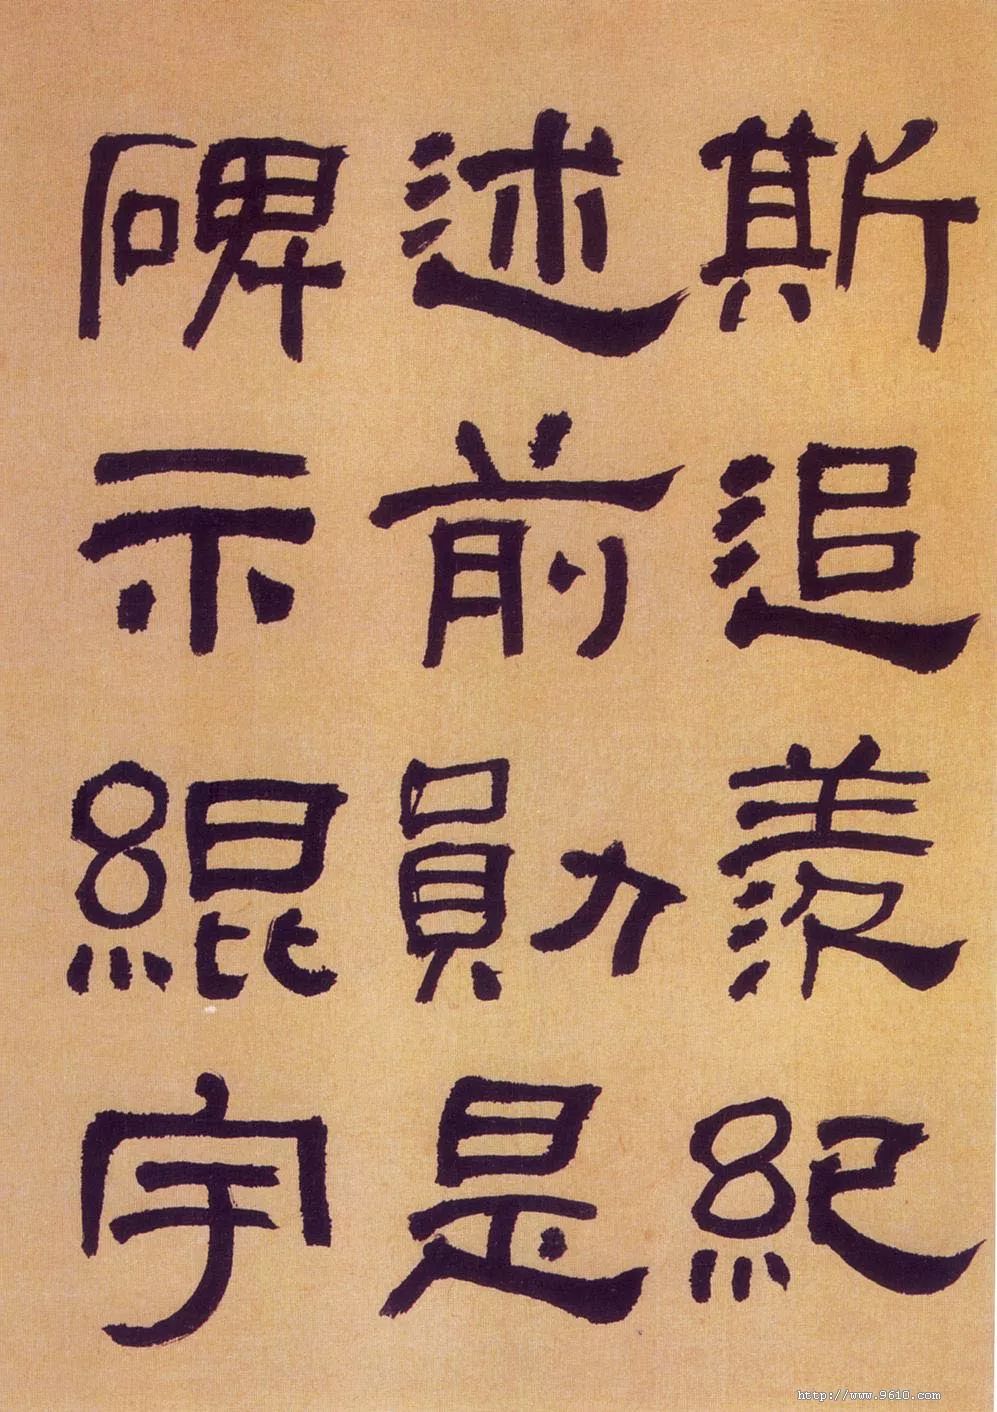 斯追羡紀
述前勛是
碑示緄宇
http://www.9610.com